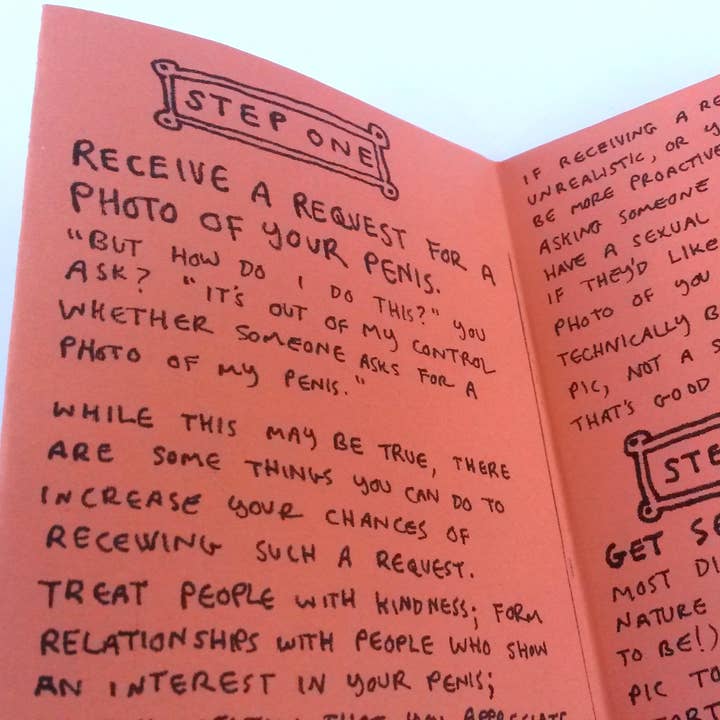 STEP ONE
RECEIVE A REQUEST FOR A
PHOTO OF YOUR PENIS.
"BUT HOW DO I DO THIS?" YOU
ASK? "IT'S OUT OF MY CONTROL
WHETHER SOMEONE ASKS FOR A
PHOTO OF MY PENIS."
WHILE THIS MAY BE TRUE, THERE
ARE SOME THINGS YOU CAN DO TO
INCREASE YOUR CHANCES OF
RECEIVING SUCH A REQUEST.
TREAT PEOPLE WITH KINDNESS; FORM
RELATIONSHIPS WITH PEOPLE WHO SHOW
AN INTEREST IN YOUR PENIS;
THAT YOU APPRECIATE
IF RECEIVING A
UNREALISTIC, OR
BE MORE PROACTIVE
ASKING SOMEONE
HAVE A SEXUAL
IF THEY'D LIKE
PHOTO OF YOU
TECHNICALLY
PIC, NOT A
THAT'S GOOD
GET
MOST
NATURE
TO BE!)
PIC TO